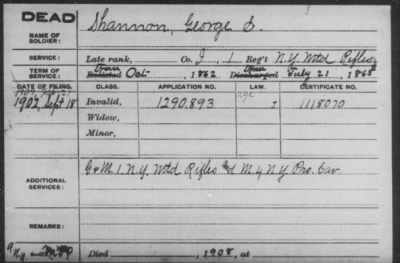 DEAD
NAME OF SOLDIER: Shannon, George E.
SERVICE: Late rank, Co. I, 1 Reg't N.Y. Mtd Rifles
TERM OF SERVICE: Enlisted Oct- , 1862 Discharged July 21 , 1865
DATE OF FILING. CLASS. APPLICATION NO. LAW. CERTIFICATE NO.
1902, Sept 18 Invalid, 1290,893 1118070
Widow,
Minor,
ADDITIONAL SERVICES: G & M 1. N.Y. Mtd Rifles and M 4 N.Y. Pro. Cav.
REMARKS:
Died , 1908, at